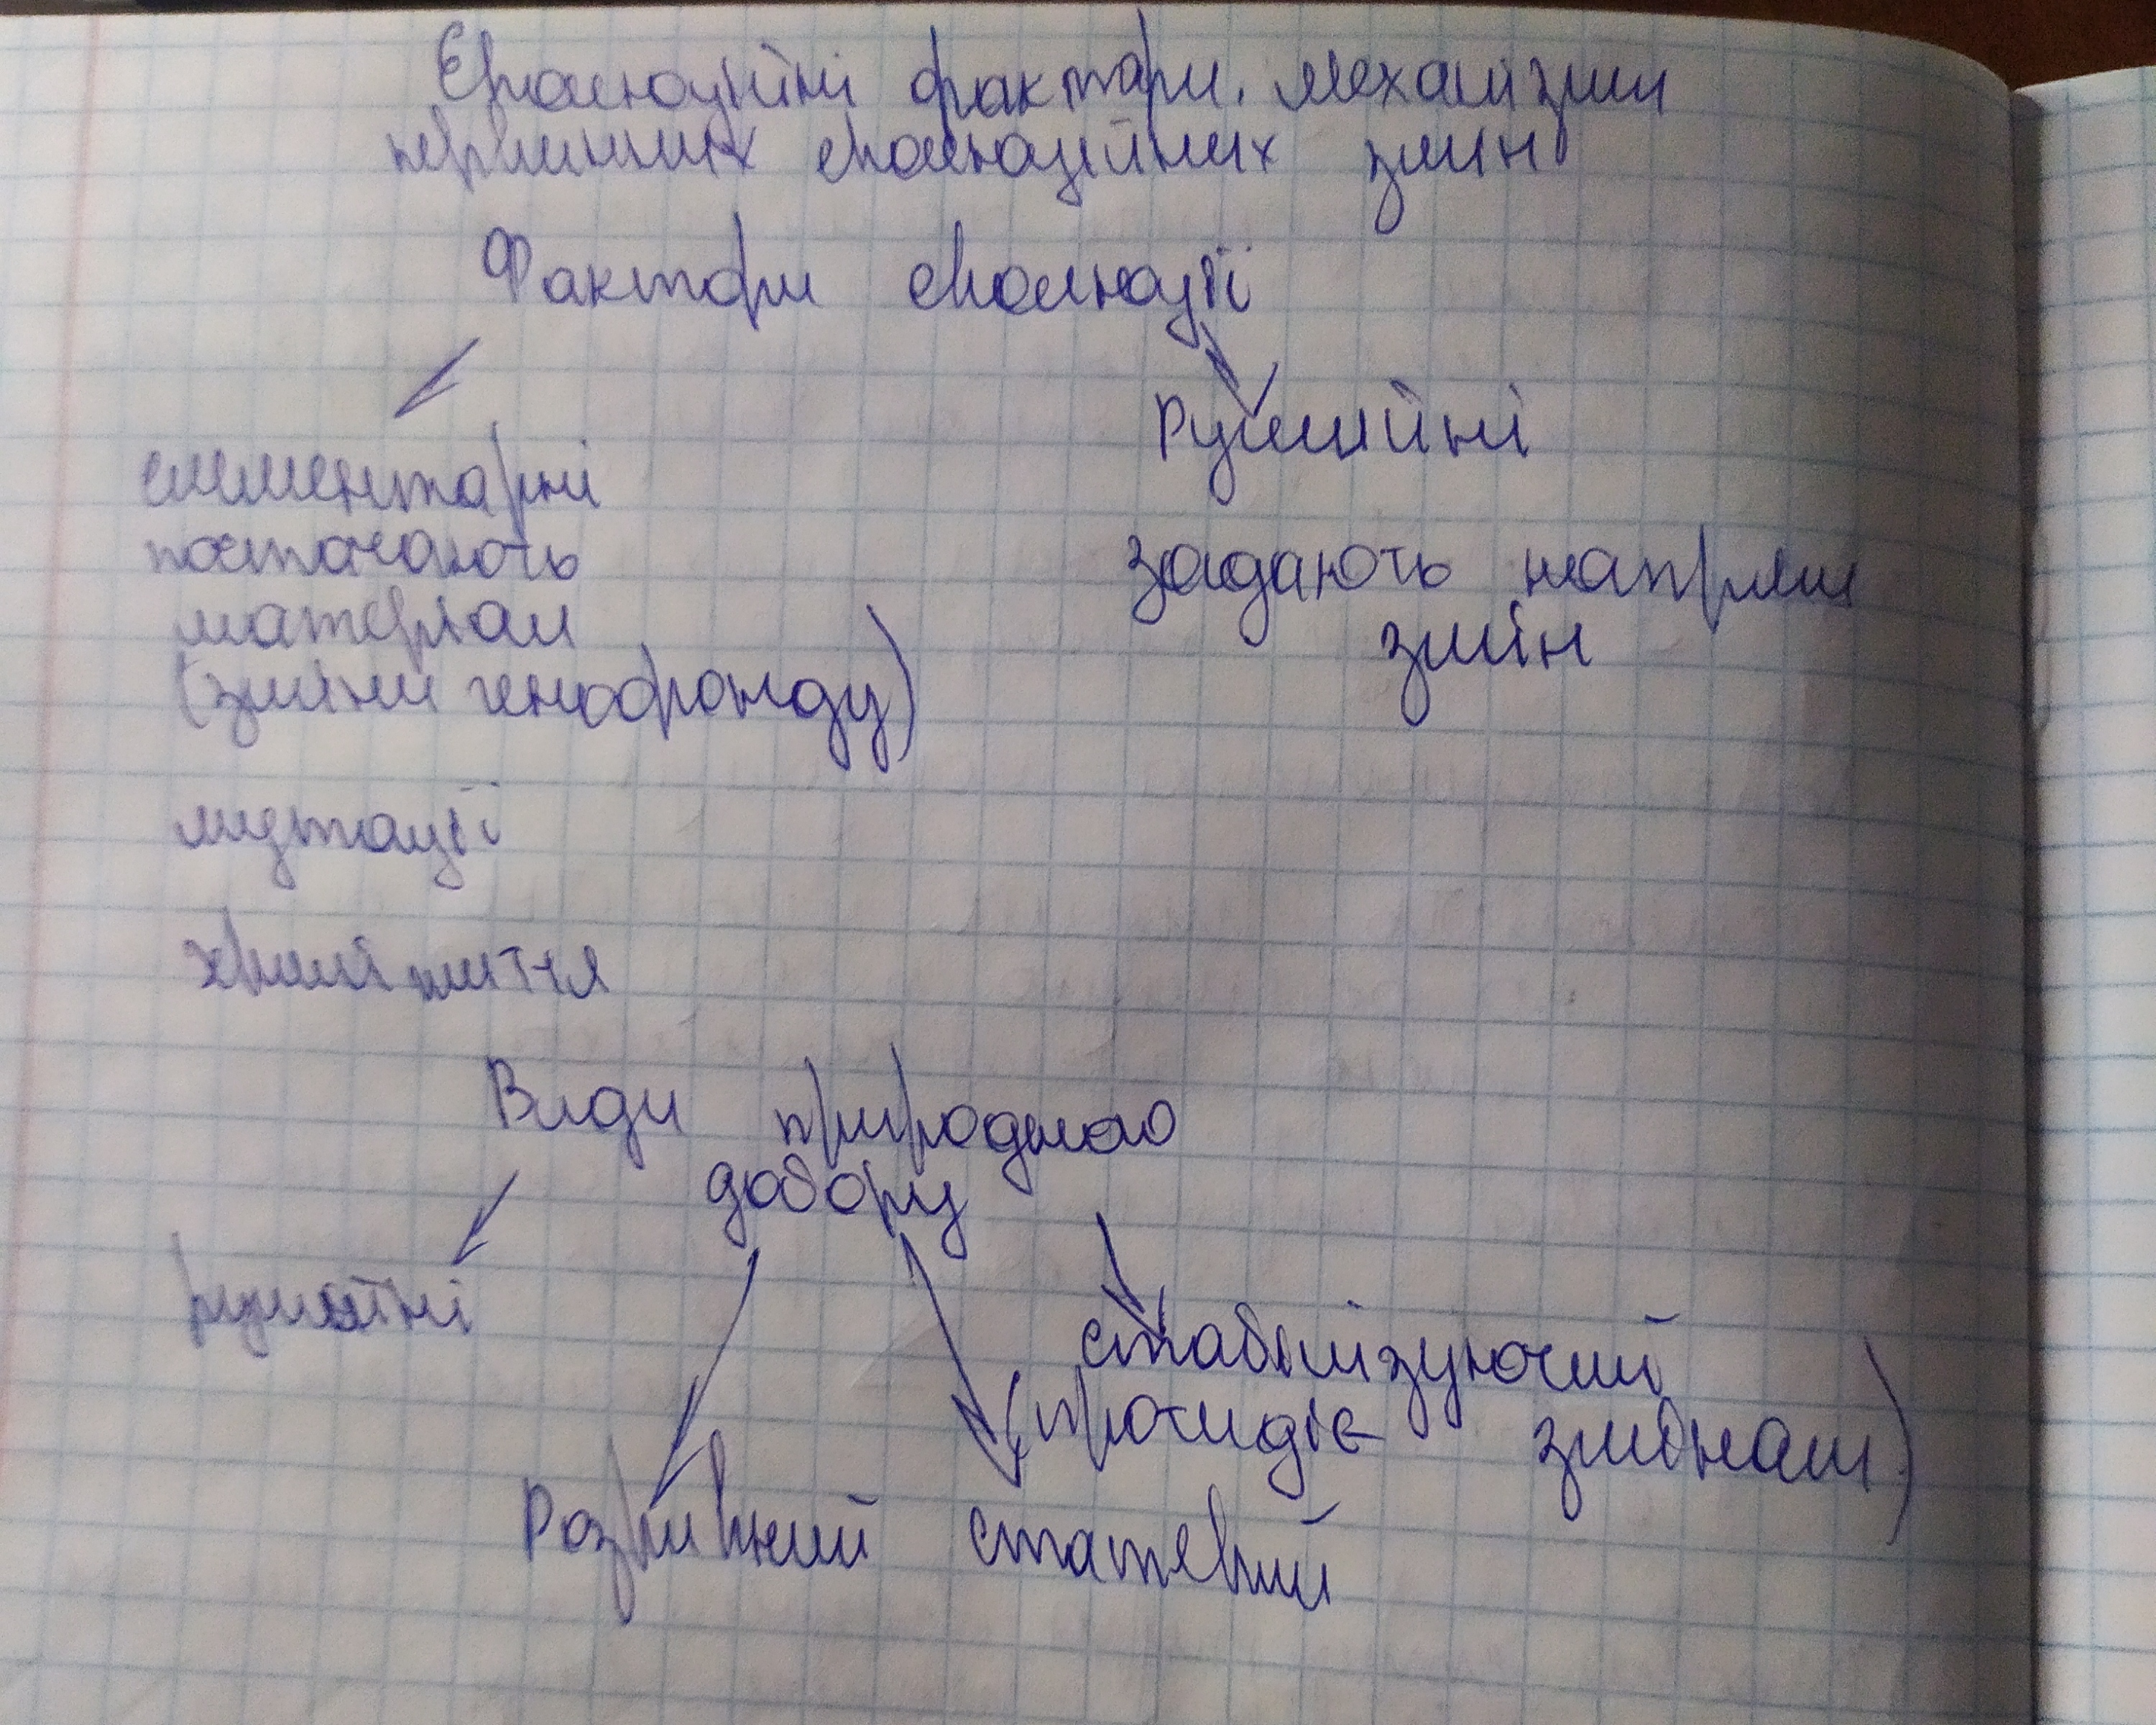 Еволюційні фактори. Механізми
первинних еволюційних змін
Фактори еволюції
елементарні
постачають
матеріал
(зміни генофонду)
мутації
хвилі життя
Рушійні
задають напрям
змін
Види природного
добору
рушійні
стабілізуючий
(протидіє змінам)
Розривний статевий